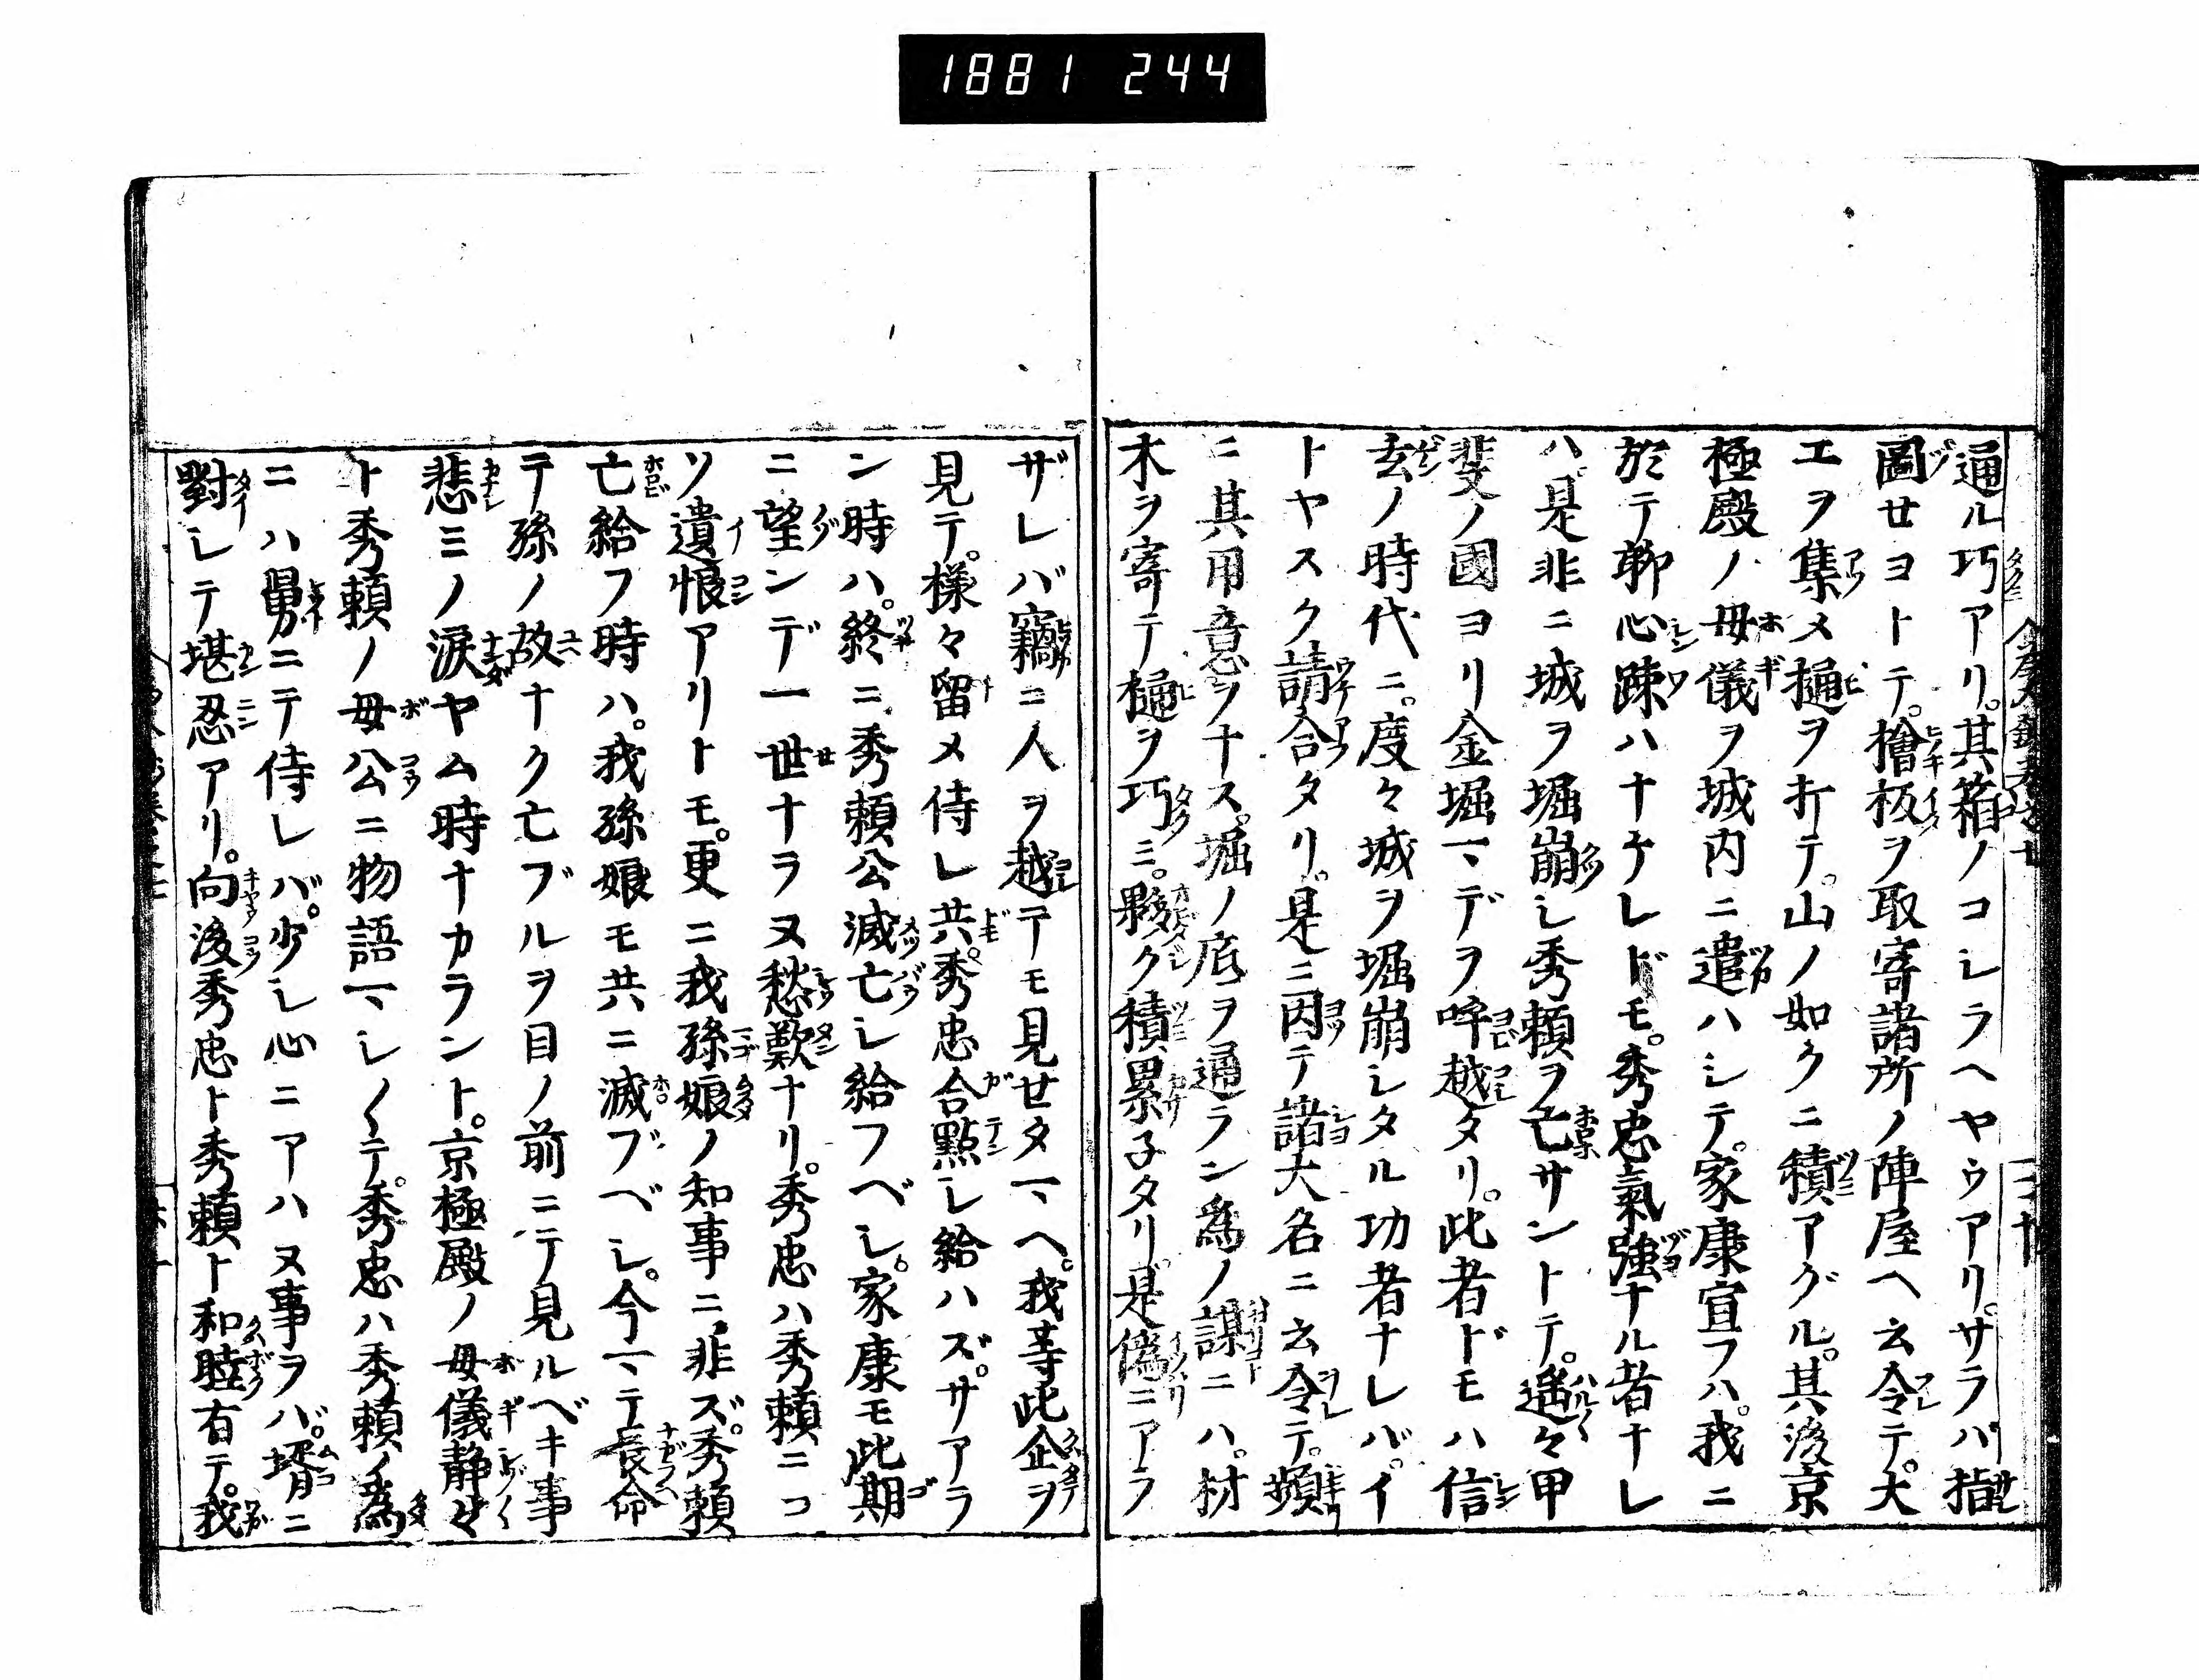 1881 244
通ル巧アリ。其箱ノコシラヘヤウアリ。サラバ指
圖せヨトテ。檜板ヲ取寄諸所ノ陣屋ヘ云令テ。大
工ヲ集メ樋ヲ折テ。山ノ如クニ積アグル。其後京
極殿ノ母儀ヲ城内ニ遣ハシテ。家康宣フハ。我ニ
於テ聊心疎ハナケレドモ。秀忠氣強ナル者ナレ
ハ。是非ニ城ヲ堀崩シ秀頼ヲ亡サントテ。遥々甲
斐ノ國ヨリ金堀マデヲ呼越タリ。此者ドモハ信
玄ノ時代ニ。度々城ヲ堀崩シタル功者ナレバ。イ
トヤスク請合タリ。是ニ因テ諸大名ニ云令テ。頻
ニ其用意ヲナス。堀ノ底ヲ通ラン為ノ謀ニハ。材
木ヲ寄テ樋ヲ巧ミ。夥ク積累子タリ。是偽ニアラ
ザレバ竊ニ人ヲ越テモ見せタマヘ。我等此企ヲ
見テ。様々留メ侍レ共。秀忠合點シ給ハズ。サアラ
ン時ハ。終ニ秀頼公滅亡シ給フベシ。家康モ此期
ニ望ンデ一世ナラヌ愁歎ナリ。秀忠ハ秀頼ニコ
ソ遺恨アリトモ。更ニ我孫娘ノ知事ニ非ズ。秀頼
亡給フ時ハ。我孫娘モ共ニ滅ブベシ。今マテ長命
テ孫ノ故ナク亡ブルヲ目ノ前ニテ見ルベキ事
悲ミノ涙ヤム時ナカラント。京極殿ノ母儀静々
ト秀頼ノ母公ニ物語マシ〱テ。秀忠ハ秀頼ノ為
ニハ舅ニテ侍レバ。少シ心ニアハヌ事ヲバ。壻ニ
對シテ堪忍アリ。向後秀忠ト秀頼ト和睦有テ。我